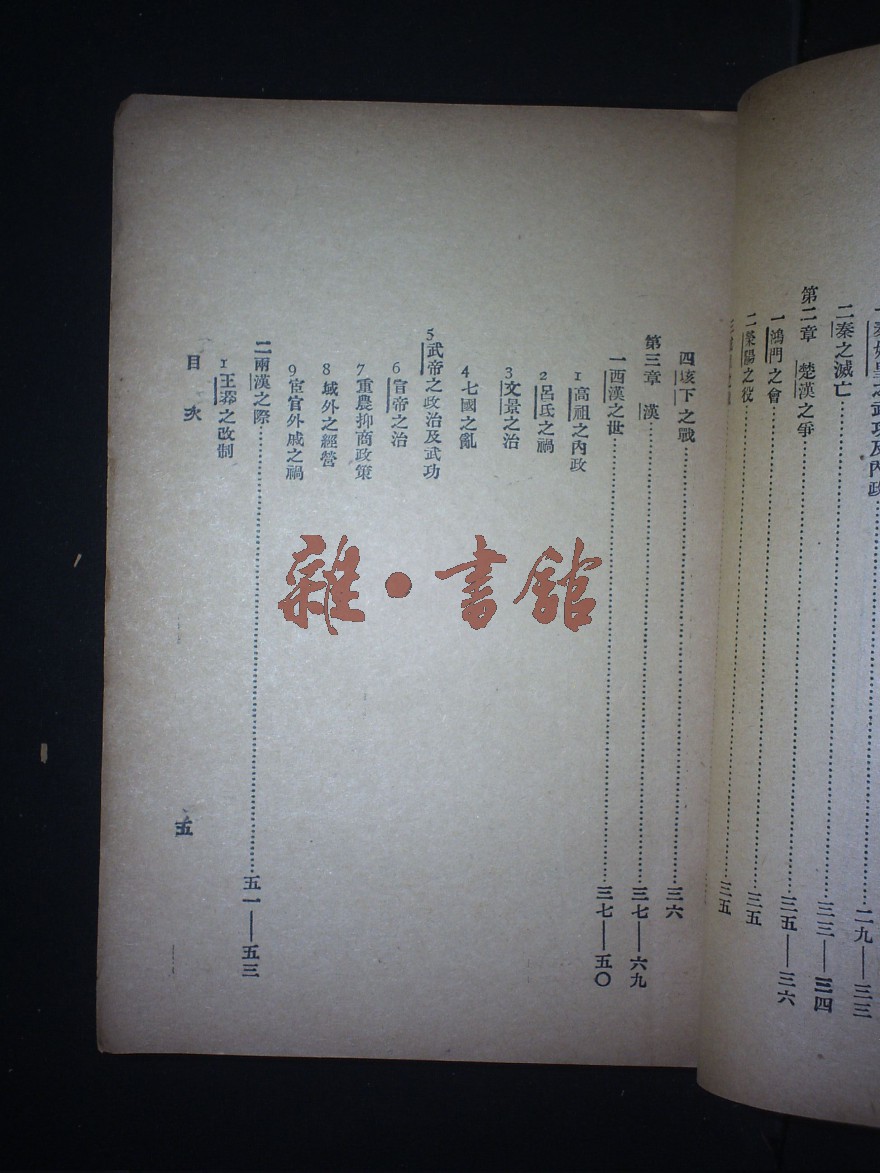 秦始皇之武功及內政……二九——三三
二秦之滅亡……三三——三四
第二章 楚漢之爭……三五——三六
一鴻門之會……三五
二滎陽之役……三五
四垓下之戰……三六
第三章 漢……三七——六九
一西漢之世……三七——五〇
1高祖之內政
2呂氏之禍
3文景之治
4七國之亂
5武帝之政治及武功
6宣帝之治
7重農抑商政策
8域外之經營
9宦官外戚之禍
二兩漢之際……五一——五三
1王莽之改制
目次
五
雜·書館